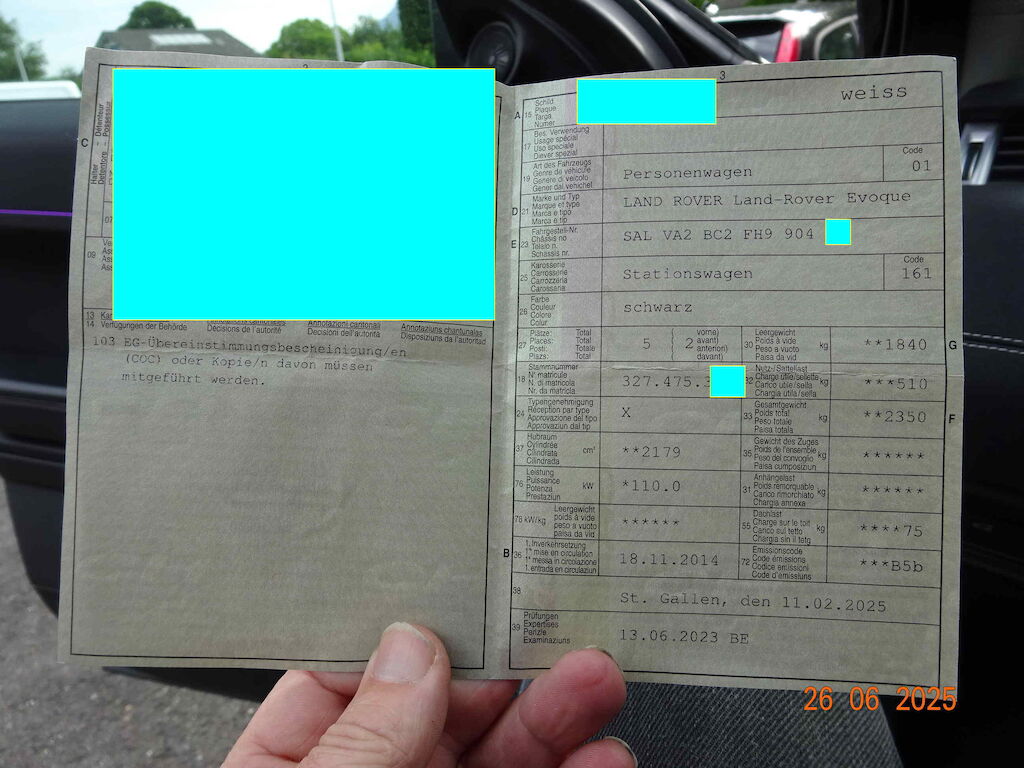 C
Halter Detenteur
Detentore Possessur
07
09
13
14 Verfügungen der Behörde Décisions de l'autorité Decisioni dell'autorità Disposiziuns da l'autoritad
Annotazioni cantonali Annotaziuns chantunalas
103 EG-Übereinstimmungsbescheinigung/en
(COC) oder Kopie/n davon müssen
mitgeführt werden.
3
A 15 Schild Plaque Targa Numer
weiss
17 Bes. Verwendung Usage spécial Uso speciale Diever spezial
19 Art des Fahrzeugs Genre de véhicule Genere di veicolo Gener dal vehichel
Personenwagen
Code 01
D 21 Marke und Typ Marque et type Marca e tipo Marca e tip
LAND ROVER Land-Rover Evoque
E 23 Fahrgestell-Nr. Châssis no Telaio n. Schassis nr.
SAL VA2 BC2 FH9 904
25 Karosserie Carrosserie Carrozzeria Carossaria
Stationswagen
Code 161
26 Farbe Couleur Colore Colur
schwarz
27 Plätze: Places: Posti: Plazs: Total Total Totale Total
5 2 vorne) avant) anteriori) davant)
30 Leergewicht Poids à vide Peso a vuoto Paisa da vid kg
**1840 G
18 Stammnummer N° matricule N. di matricola Nr. da matricla
327.475.
32 Nutz-/Sattellast Charge utile/sellette Carico utile/sella Chargia utila/sella kg
***510
24 Typengenehmigung Réception par type Approvazione del tipo Approvaziun dal tip
X
33 Gesamtgewicht Poids total Peso totale Paisa totala kg
**2350 F
37 Hubraum Cylindrée Cilindrata Cilindrada cm³
**2179
35 Gewicht des Zuges Poids de l'ensemble Peso del convoglio Paisa cumposiziun kg
******
76 Leistung Puissance Potenza Prestaziun kW
*110.0
31 Anhängelast Poids remorquable Carico rimorchiato Chargia annexa kg
******
78 kW/kg Leergewicht poids à vide peso a vuoto paisa da vid
******
55 Dachlast Charge sur le toit Carico sul tetto Chargia sin il tetg kg
****75
B 36 1. Inverkehrsetzung 1re mise en circulation 1a messa in circolazione 1. entrada en circulaziun
18.11.2014
72 Emissionscode Code émissions Codice emissioni Code d'emissiuns
***B5b
38
St. Gallen, den 11.02.2025
39 Prüfungen Expertises Perizie Examinaziuns
13.06.2023 BE
26 06 2025